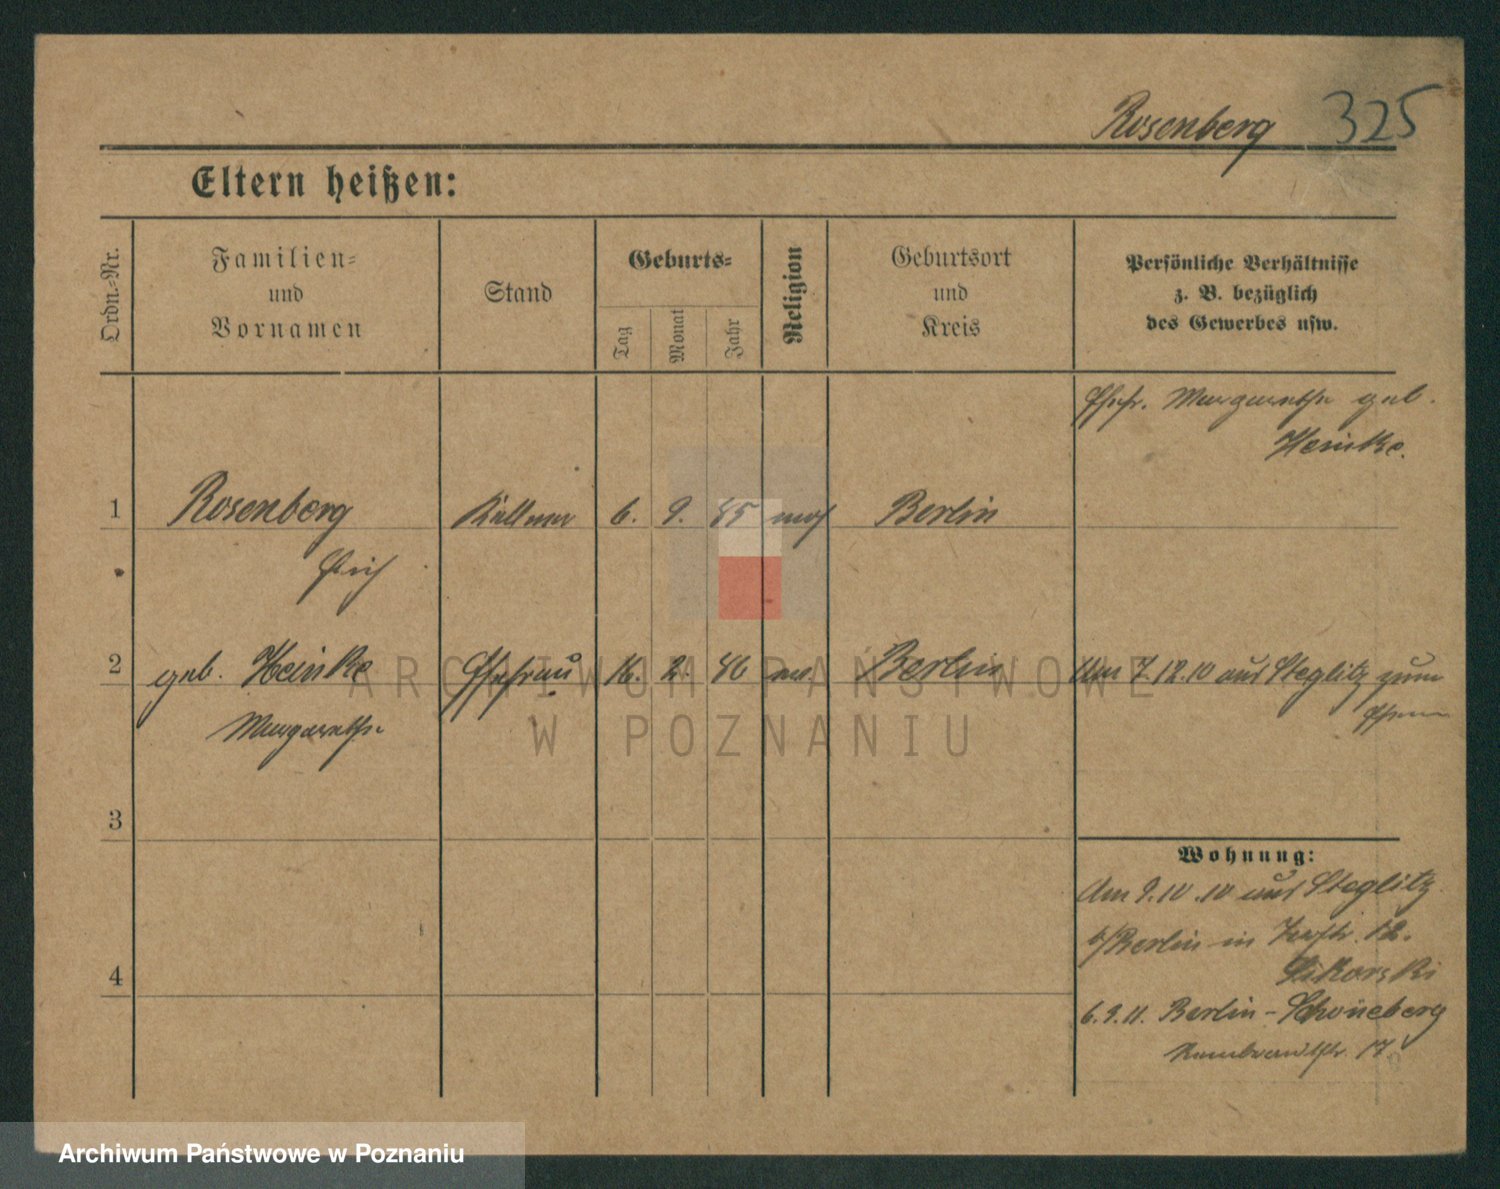 Rosenberg 325
Eltern heißen:
Ordn.-Nr.
Familien-
und
Vornamen
Stand
Geburts-
Tag
Monat
Jahr
Religion
Geburtsort
und
Kreis
Persönliche Verhältnisse
z. B. bezüglich
des Gewerbes usw.
Ehefr. Margarethe geb.
Heinke.
1 Rosenberg Kellner 6. 9. 85 mos Berlin
Erich
2 geb. Heinke Ehefrau 16. 2. 86 ev. Berlin Am 7.12.10 aus Steglitz zum
Margarethe Ehem
3
Wohnung:
Am 9.10.10 aus Steglitz
b/Berlin in 12.
4 Sikorski
6.9.11. Berlin-Schöneberg
Rembrandtstr. 17.
ARCHIWUM PAŃSTWOWE
W POZNANIU
Archiwum Państwowe w Poznaniu